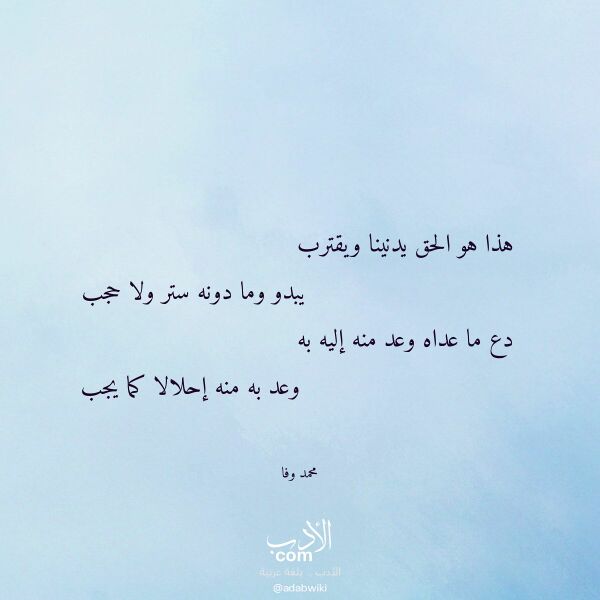 هذا هو الحق يدنينا ويقترب
يبدو وما دونه ستر ولا حجب
دع ما عداه وعد منه إليه به
وعد به منه إحلالا كما يجب
محمد وفا
الأدب
com
الأدب .. بلغة عربية
@adabwiki